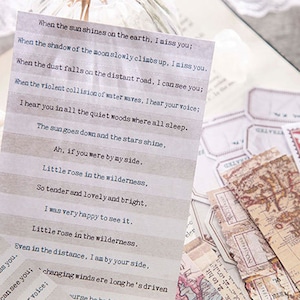 When the sun shines on the earth, I miss you;
When the shadow of the moon slowly climbs up, I miss you.
When the dust falls on the distant road, I can see you;
When the violent collision of water waves, I hear your voice:
I hear you in all the quiet woods where all sleep.
The sun goes down and the stars shine.
Ah, if you were by my side.
Little rose in the wilderness.
So tender and lovely and bright.
I was very happy to see it.
Little rose in the wilderness.
Even in the distance, I am by your side.
changing winds ere long he's driven
miss you.